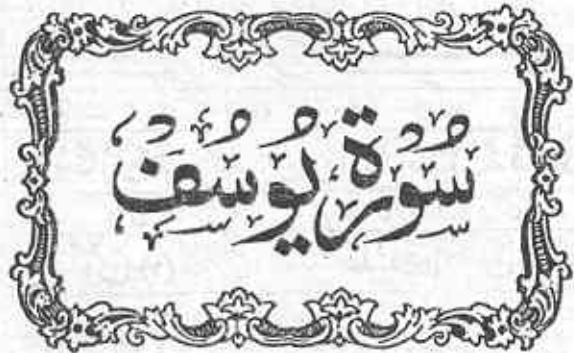 سُوْرَةُ يُوْسُفَ